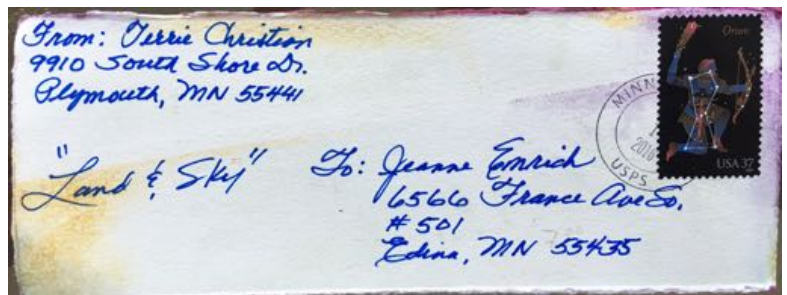 From: Terrie Christian
9910 South Shore Dr.
Plymouth, MN 55441
"Land & Sky"
To: Jeanne Emrich
6566 France Ave So.
#501
Edina, MN 55435
Orion
USA 37
MINN
2016
USPS